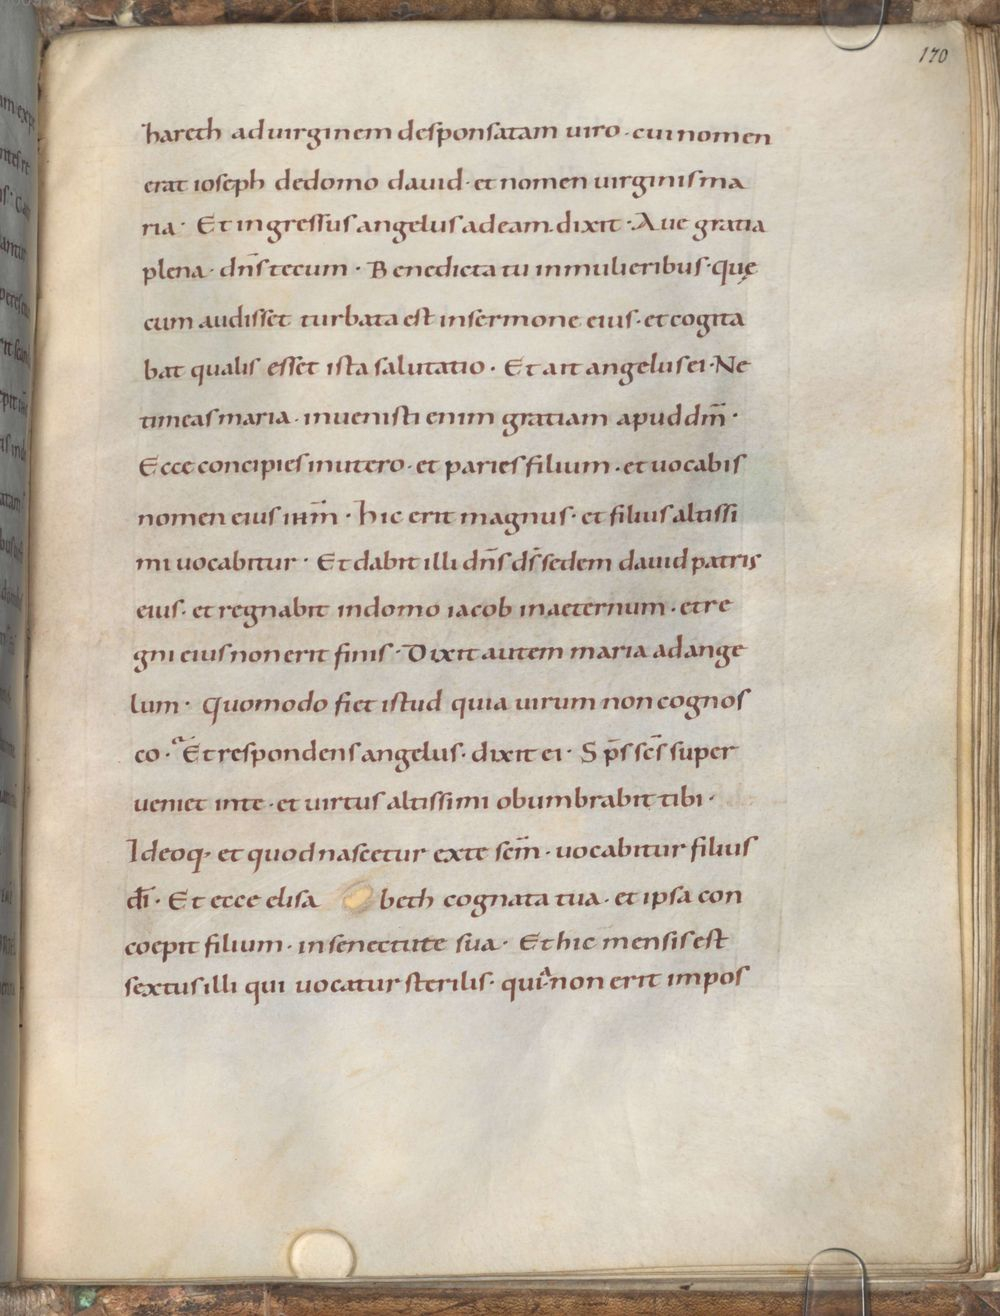 170
hareth ad uirginem desponsatam uiro · cui nomen
erat ioseph de domo dauid · et nomen uirginis ma
ria · Et ingressus angelus ad eam dixit · Aue gratia
plena · dn̄s tecum · Benedicta tu in mulieribus · quę
cum audisset turbata est in sermone eius · et cogita
bat qualis esset ista salutatio · Et ait angelus ei · Ne
timeas maria · inuenisti enim gratiam apud dm̄ ·
Ecce concipies in utero · et paries filium · et uocabis
nomen eius ihm̄ · hic erit magnus · et filius altissi
mi uocabitur · Et dabit illi dn̄s ds̄ sedem dauid patris
eius · et regnabit in domo iacob in aeternum · et re
gni eius non erit finis · Dixit autem maria ad ange
lum · Quomodo fiet istud quia uirum non cognos
co · Et respondens angelus · dixit ei · Sps̄ scs̄ super
ueniet in te · et uirtus altissimi obumbrabit tibi ·
Ideoq; et quod nascetur ex te scm̄ · uocabitur filius
dī · Et ecce elisa beth cognata tua · et ipsa con
coepit filium · in senectute sua · Et hic mensis est
sextus illi qui uocatur sterilis · quia non erit impos